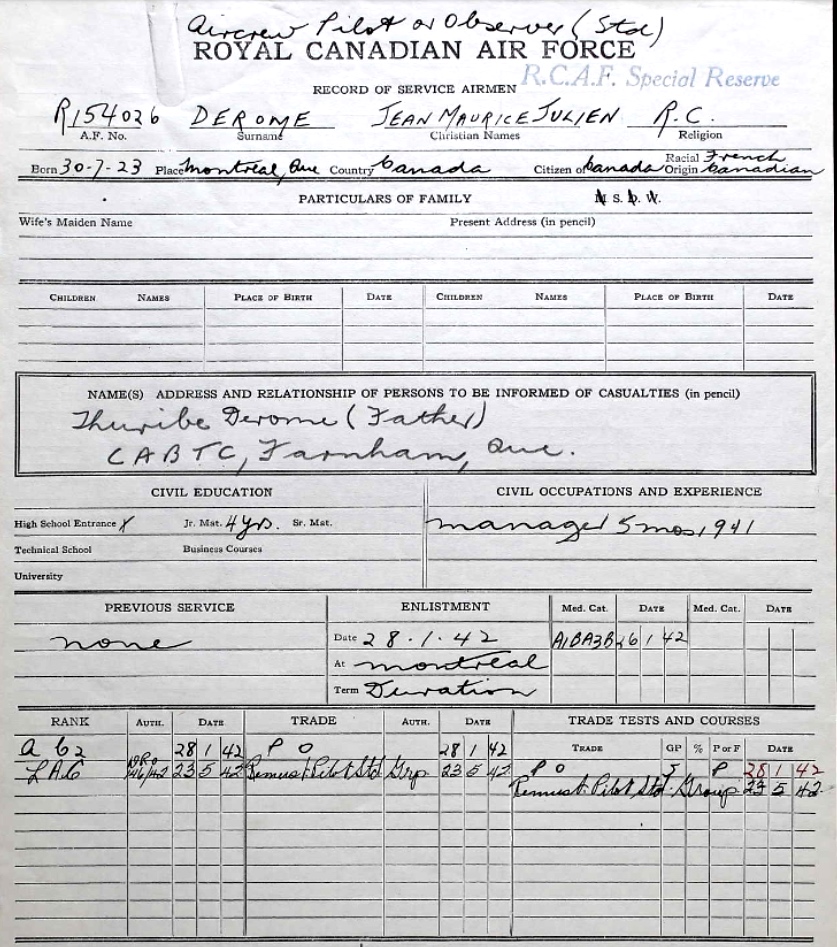 Aircrew Pilot or Observer (Std)
ROYAL CANADIAN AIR FORCE
RECORD OF SERVICE AIRMEN R.C.A.F. Special Reserve
R154026 DEROME JEAN MAURICE JULIEN R.C.
A.F. No. Surname Christian Names Religion
Born 30-7-23 Place Montreal, Que Country Canada Citizen of Canada Racial Origin French Canadian
PARTICULARS OF FAMILY M. S. D. W.
Wife's Maiden Name Present Address (in pencil)
CHILDREN NAMES PLACE OF BIRTH DATE CHILDREN NAMES PLACE OF BIRTH DATE
NAME(S) ADDRESS AND RELATIONSHIP OF PERSONS TO BE INFORMED OF CASUALTIES (in pencil)
Thuribe Derome (Father)
CABTC, Farnham, Que.
CIVIL EDUCATION CIVIL OCCUPATIONS AND EXPERIENCE
High School Entrance Jr. Mat. 4 yrs. Sr. Mat. manager 5 mos 1941
Technical School Business Courses
University
PREVIOUS SERVICE ENLISTMENT Med. Cat. DATE Med. Cat. DATE
none Date 28.1.42 A1BA3B 26 1 42
At Montreal
Term Duration
RANK AUTH. DATE TRADE AUTH. DATE TRADE TESTS AND COURSES
AC2 28 1 42 P O 28 1 42 TRADE GP % P or F DATE
LAC DRO 23 5 42 Pilot Std Grp 23 5 42 P O P 28 1 42
Pilot Std Group 23 5 42